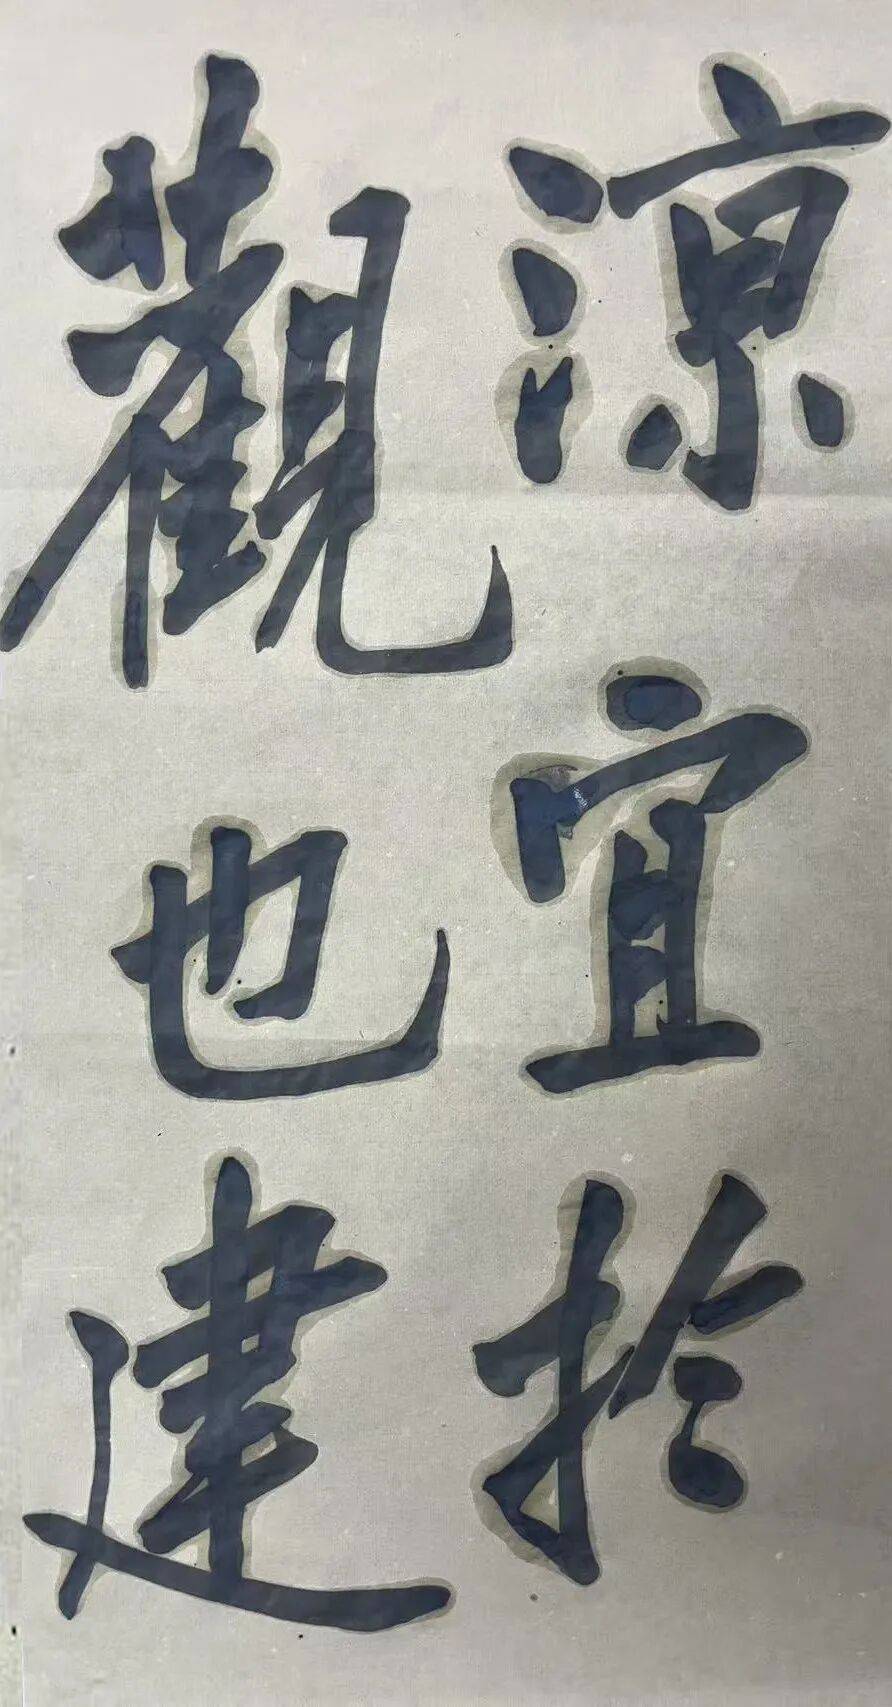 凉宜於
觀也建